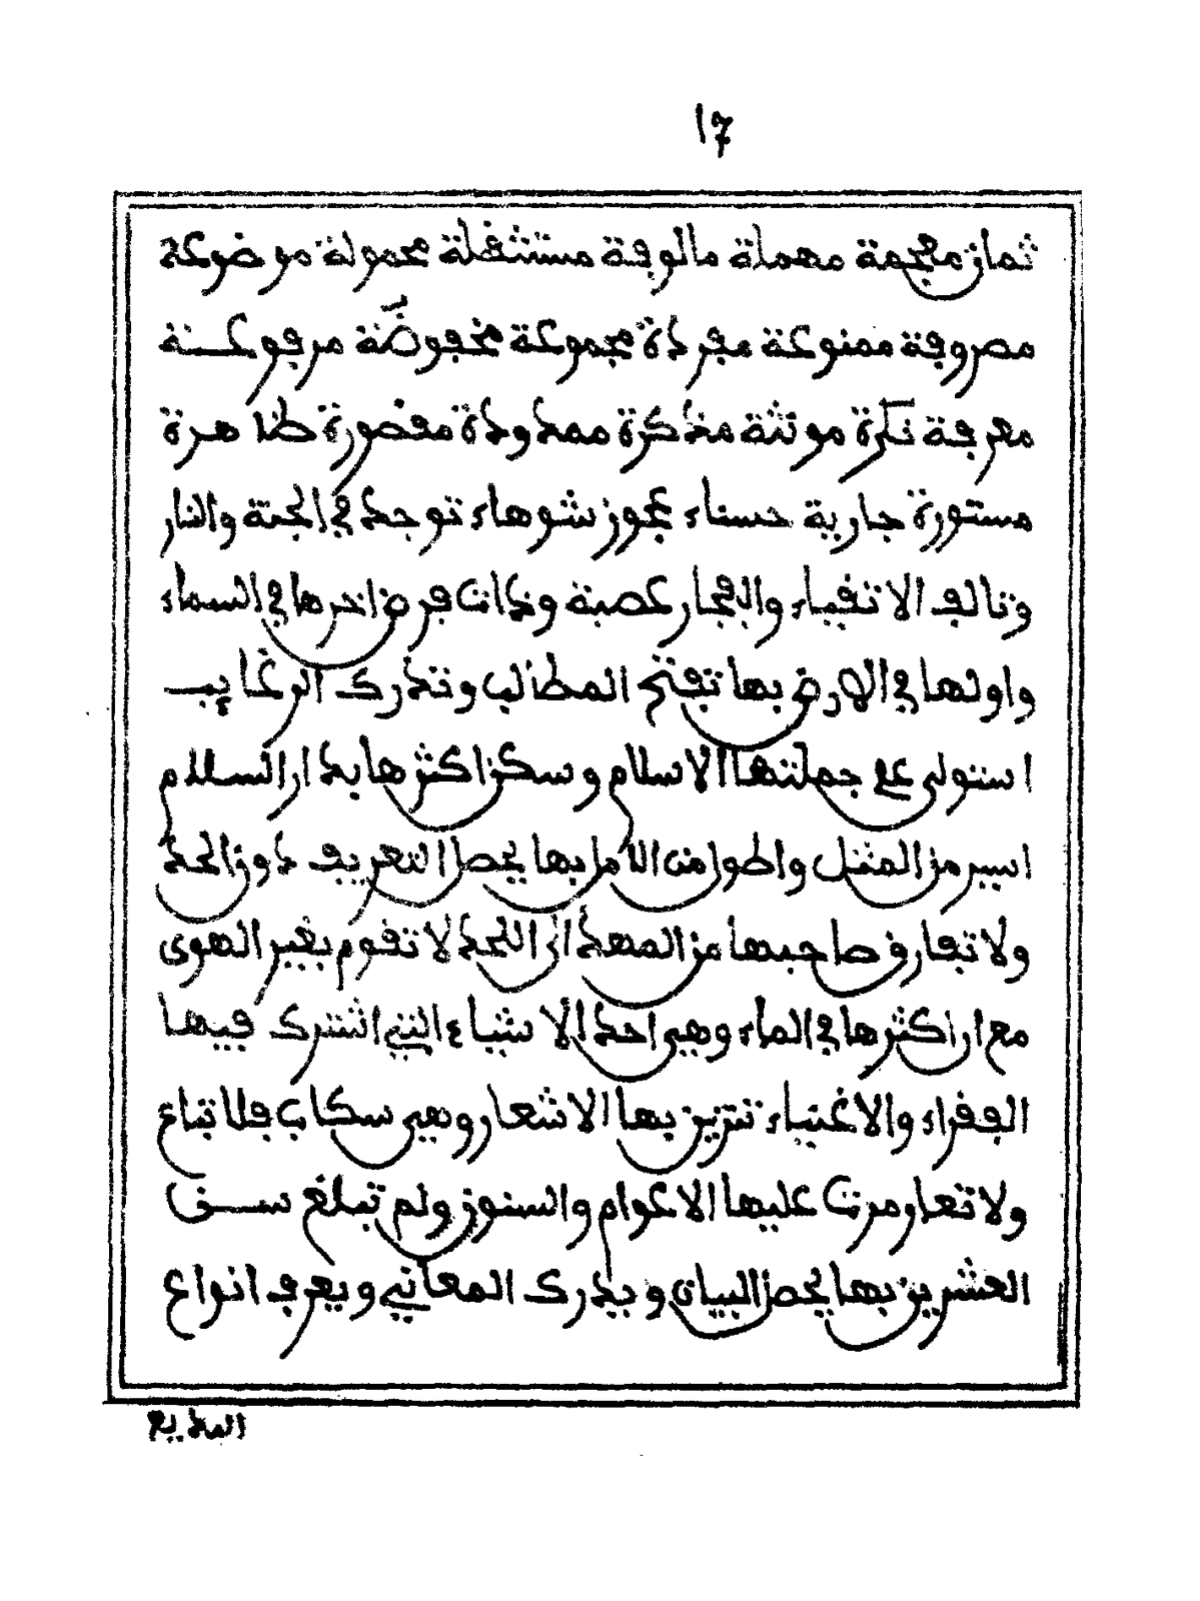 17
ثمان معجمة مهملة مالوفة مستثقلة محمولة موضوعة
مصروفة ممنوعة مفردة مجموعة مخفوضة مرفوعة
معرفة نكرة مونثة مذكرة ممدودة مقصورة ظاهرة
مستورة جارية حسناء عجوز شوهاء توجد في الجنة والنار
وتالف الاتقياء والفجار عصبة وذات فرض اخرها في السماء
واولها في الارض بها تفتح المطالب وتدرك الرغايب
استولى على جملتها الاسلام وسكن اكثرها بدار السلام
اسير من المثل واطول من الامل بها يحصل التعريف دون الحد
ولا تفارق صاحبها من المهد الى اللحد لا تقوم بغير الهوى
مع ان اكثرها في الماء وهي احد الاشياء التي اشترك فيها
الفقراء والاغنياء تتزين بها الاشعار وهي سكاب فلا تباع
ولا تعار مرت عليها الاعوام والسنون ولم تبلغ سن
العشرين بها يحصل البيان ويدرك المعاني ويعرف انواع
البديع